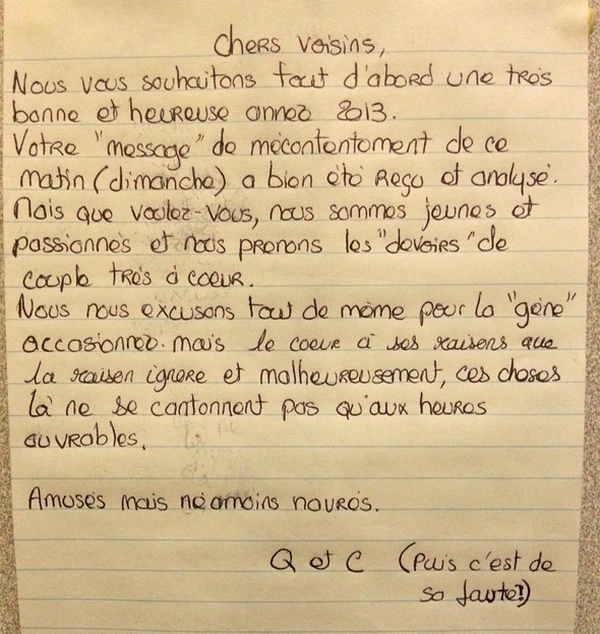 Chers voisins,
Nous vous souhaitons tout d'abord une très
bonne et heureuse année 2013.
Votre "message" de mécontentement de ce
matin (dimanche) a bien été reçu et analysé.
Mais que voulez-vous, nous sommes jeunes et
passionnés et nous prenons les "devoirs" de
couple très à coeur.
Nous nous excusons tout de même pour la "gène"
occasionnez. mais le coeur à ses raisons que
la raison ignore et malheureusement, ces choses
là ne se cantonnent pas qu'aux heures
ouvrables.
Amusés mais néamoins navrés.
Q et C (Puis c'est de
sa faute!)